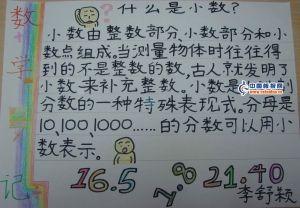 数学
记
什么是小数?
小数由整数部分、小数部分和小
数点组成。当测量物体时往往得
到的不是整整的数,古人就发明了
小数来补充整数。小数是
分数的一种特殊表现形式。分母是
10,100,1000……的分数可以用小
数表示。
16.5 7.8 21.40
李舒颖